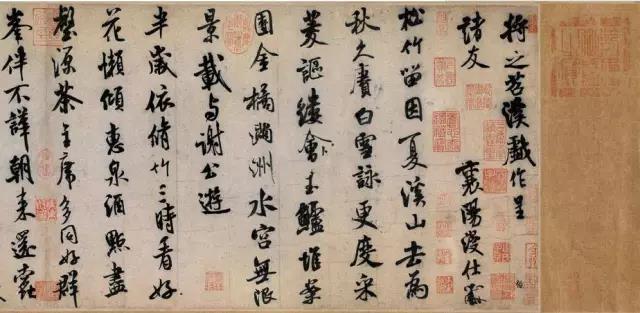 將之苕溪戲作呈
諸友 襄陽漫仕黻
松竹留因夏溪山去為
秋久賡白雪詠更度采
菱謳縷會玉鱸堆案
團金橘滿洲水宮無限
景載与謝公遊
半歲依脩竹三時看好
花懶傾惠泉酒點盡
壑源茶主席多同好群
峯伴不譁朝来還蠹